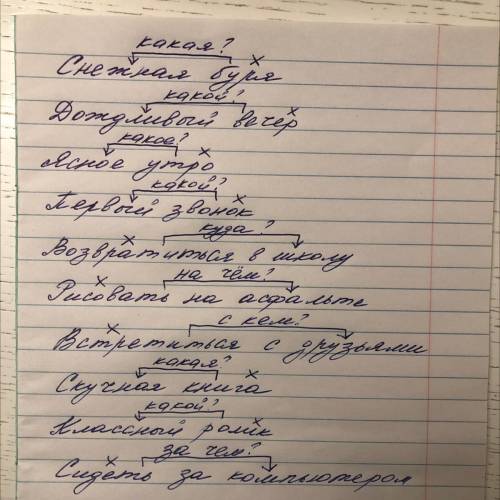 какая?
Снежная буря
какой?
Дождливый вечер
какое?
Ясное утро
какой?
Первый звонок
куда?
Возвратиться в школу
на чём?
Рисовать на асфальте
с кем?
Встретиться с друзьями
какая?
Скучная книга
какой?
Классный ролик
за чем?
Сидеть за компьютером